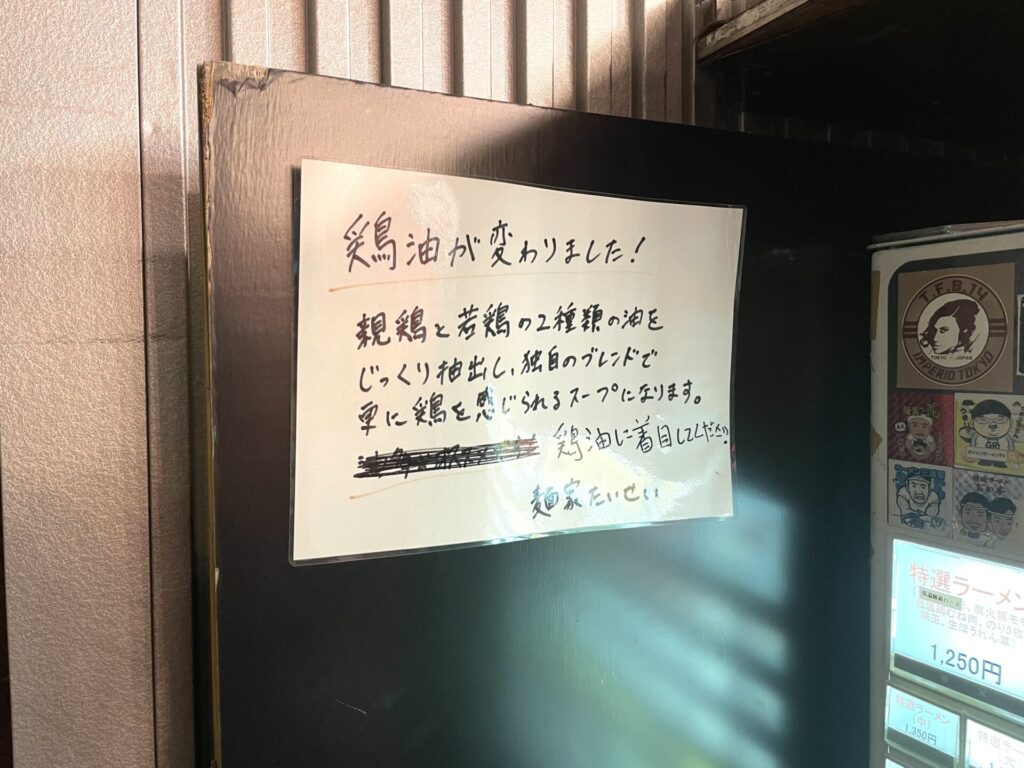 鶏油が変わりました!
親鶏と若鶏の2種類の油を
じっくり抽出し、独自のブレンドで
更に鶏を感じられるスープになります。
鶏油に着目してください
麺家たいせい
T.F.B.14
TOKYO JAPAN
IMPERIO TOKYO
特選ラーメン
低温鶏むね肉、のり5枚
味玉、生ほうれん草
1,250円
特選ラーメン
(中)
1,350円
特選ラーメ